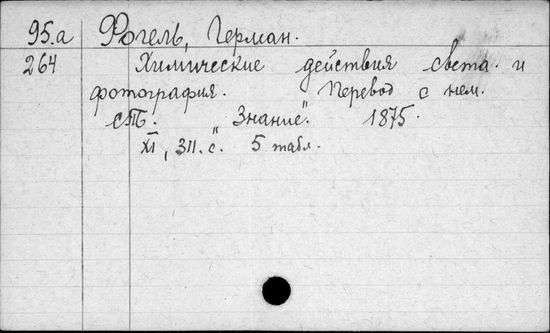 95.а Фогель, Герман.
264 Химические действия света и
фотография. Перевод с нем.
СПб. "Знание". 1875.
XI, 311. с. 5 табл.